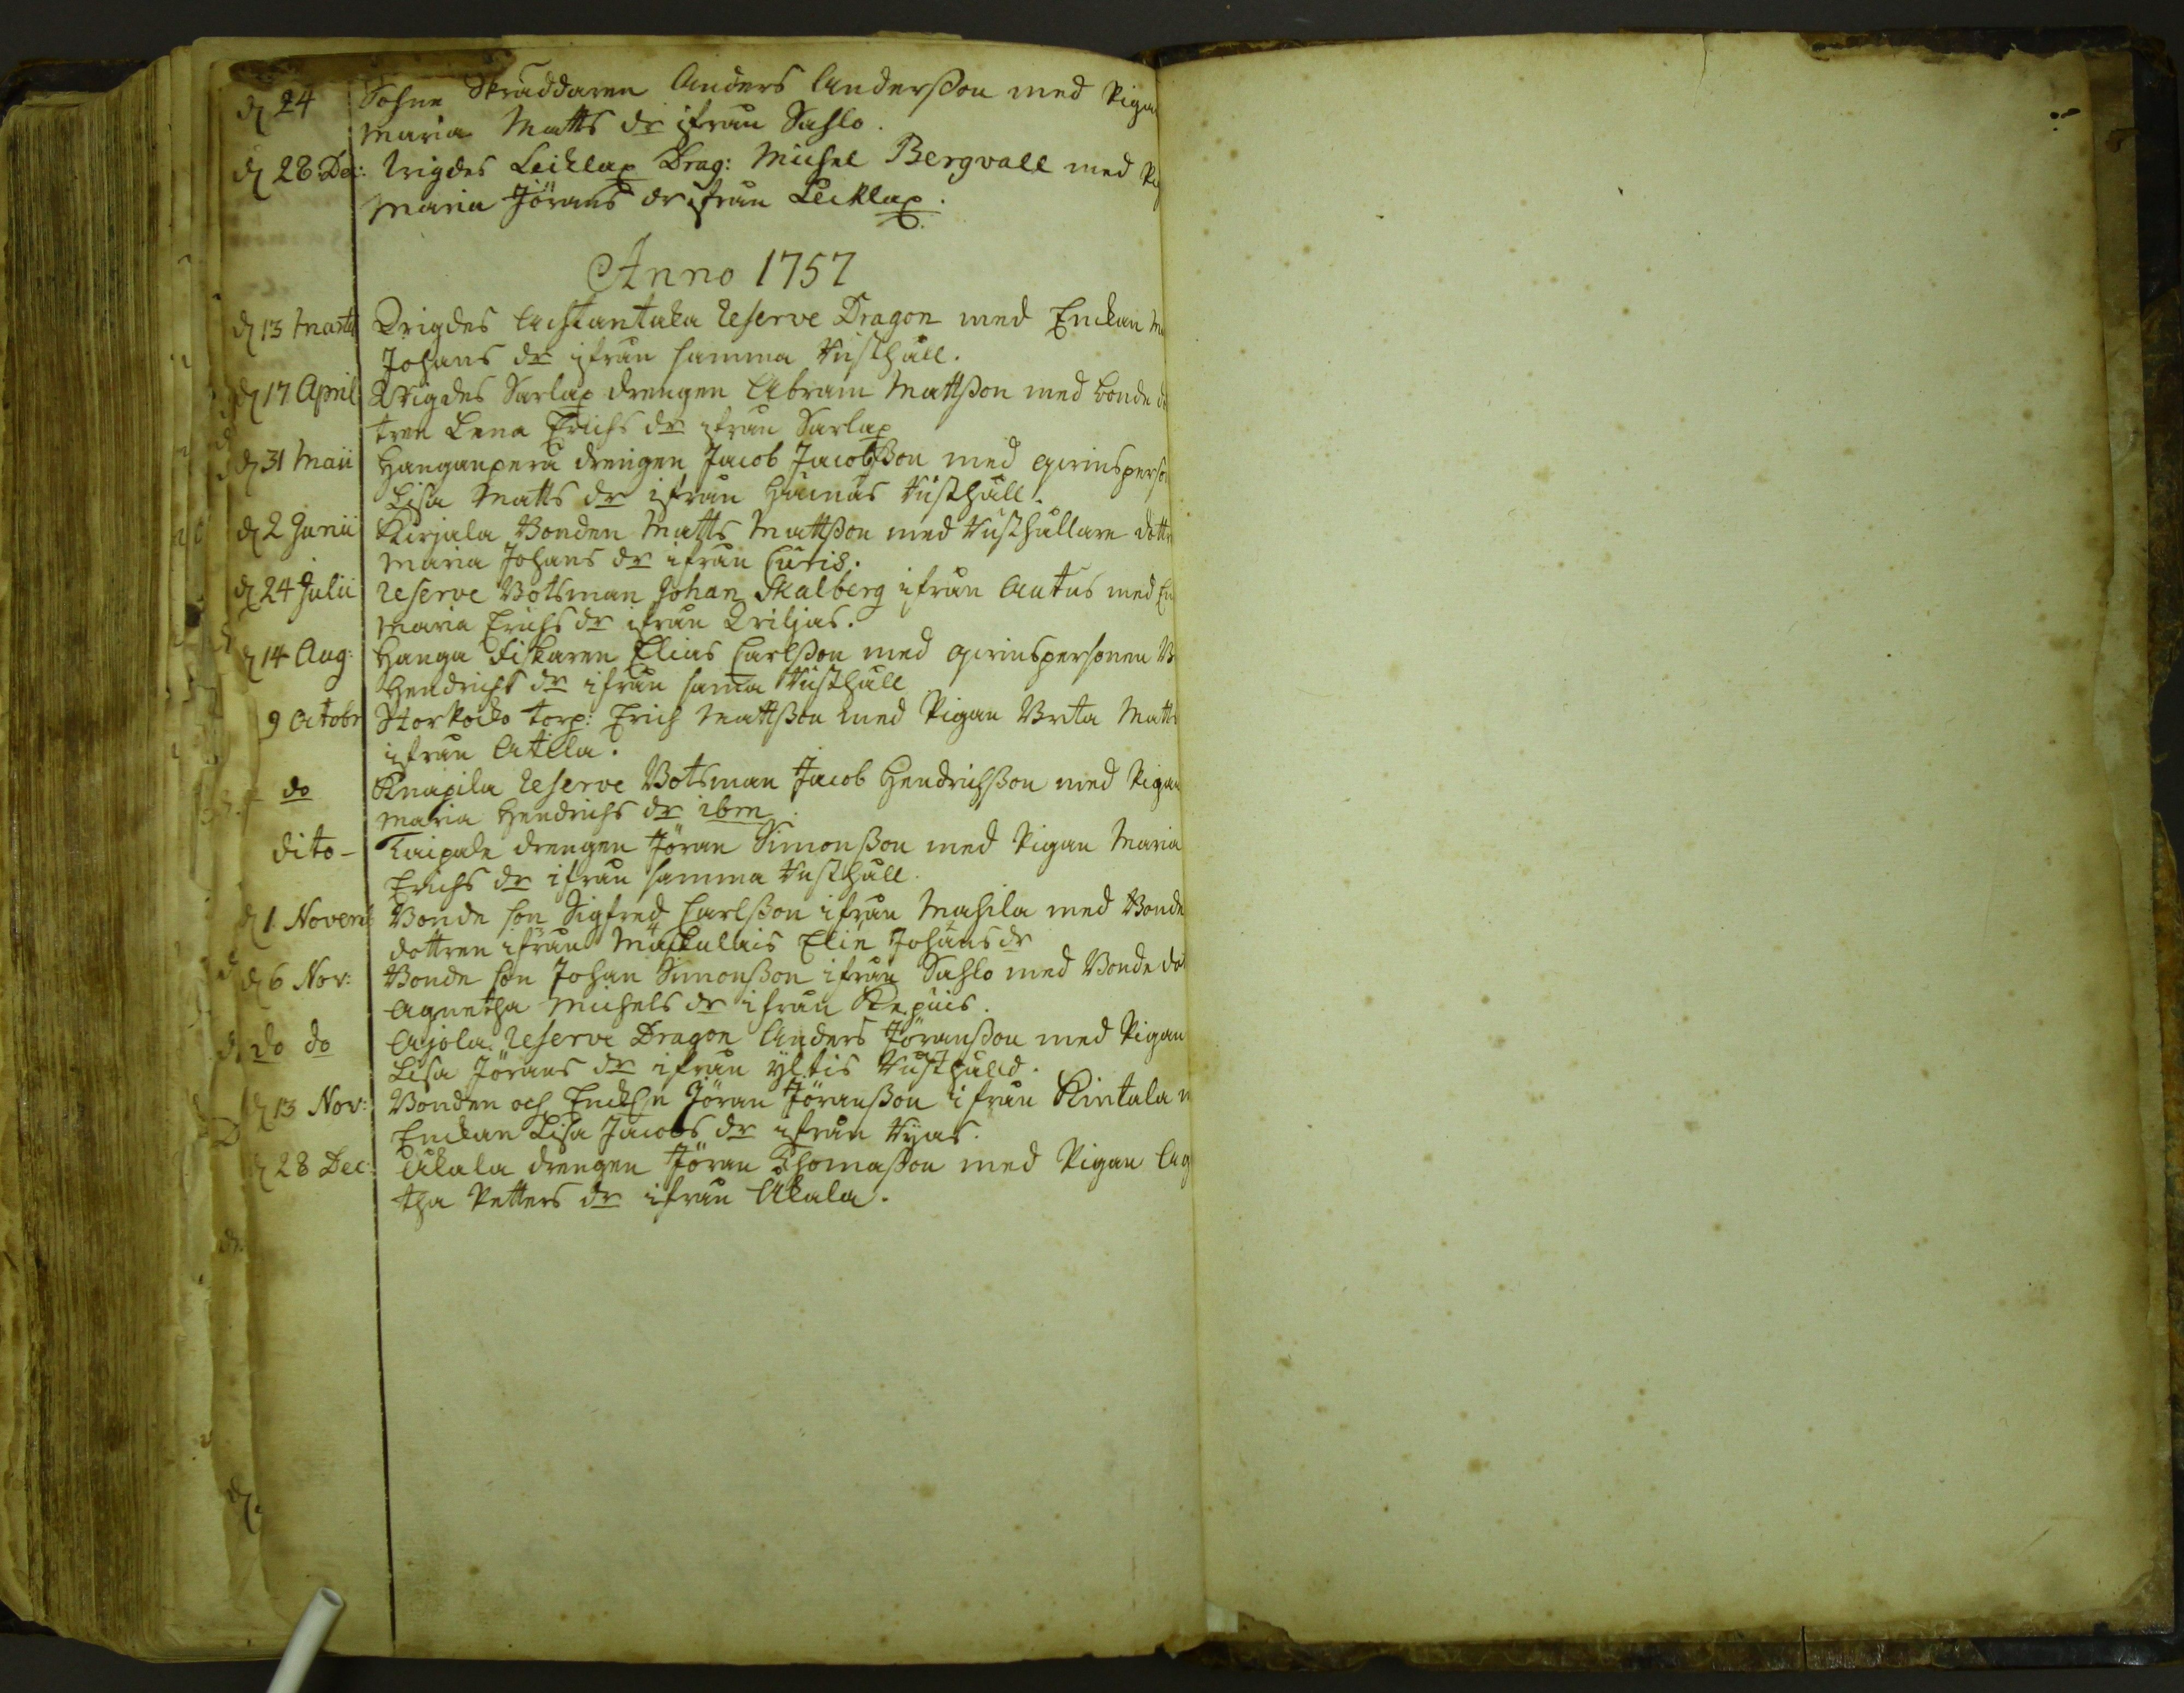 d 24 Sohne Skräddaren Anders Andersson med Piga
Maria Matts dr ifrån Sahlo.
d 28 Dec: Wigdes Leiklax Drag: Michel Bergvall med
Maria Jörans dr ifrån Leiklax.
Anno 1757
d 13 Martii Wigdes Reserve Dragon med Enckan
Johans dr ifrån samma Rusthåll.
d 17 April Wigdes Sarlax drengen Abram Mattsson med bonde
tren Lena Erichs dr ifrån Sarlax
d 31 Maii Hanganperä drengen Jacob Jacobsson med qvinsperso
Lisa Matts dr ifrån Rusthåll.
d 2 Junii Kirjala Bonden Matts Mattsson med Rusthållare dott
Maria Johans dr ifrån Curis.
d 24 Julii Reserve Botsman Johan Skalberg ifrån med
Maria Erichs dr ifrån
d 14 Aug: Hanga Fiskaren Elias Carlsson med qvinspersonen
Hendrichs dr ifrån sama Rusthåll
9 Octobr torp: Erich Mattsson med Pigan Brita Matts
ifrån Attila.
do Knapila Reserve Botsman Jacob Hendrichsson med Pigan
Maria Hendrichs dr ibm
dito - Taipale drengen Jöran Simonsson med Pigan Maria
Erichs dr ifrån samma Rusthåll.
d 1 Novem Bonde son Sigfred Carlsson ifrån Mahila med Bonde
dottren ifrån Elin Johans dr
d 6 Nov: Bonde son Johan Simonsson ifrån Sahlo med Bonde do
Agnetha Michels dr ifrån Repuis.
do do Ajola Reserve Dragon Anders Jöransson med Pigan
Lisa Jörans dr ifrån Yltis Rusthåld.
d 13 Nov: Bonden och Jöran Jöransson ifrån Rintala
Enckan Lisa Jacobs dr ifrån
d 28 Dec: Akala drengen Jöran Thomasson med Pigan Ag
tha Petters dr ifrån Akala.